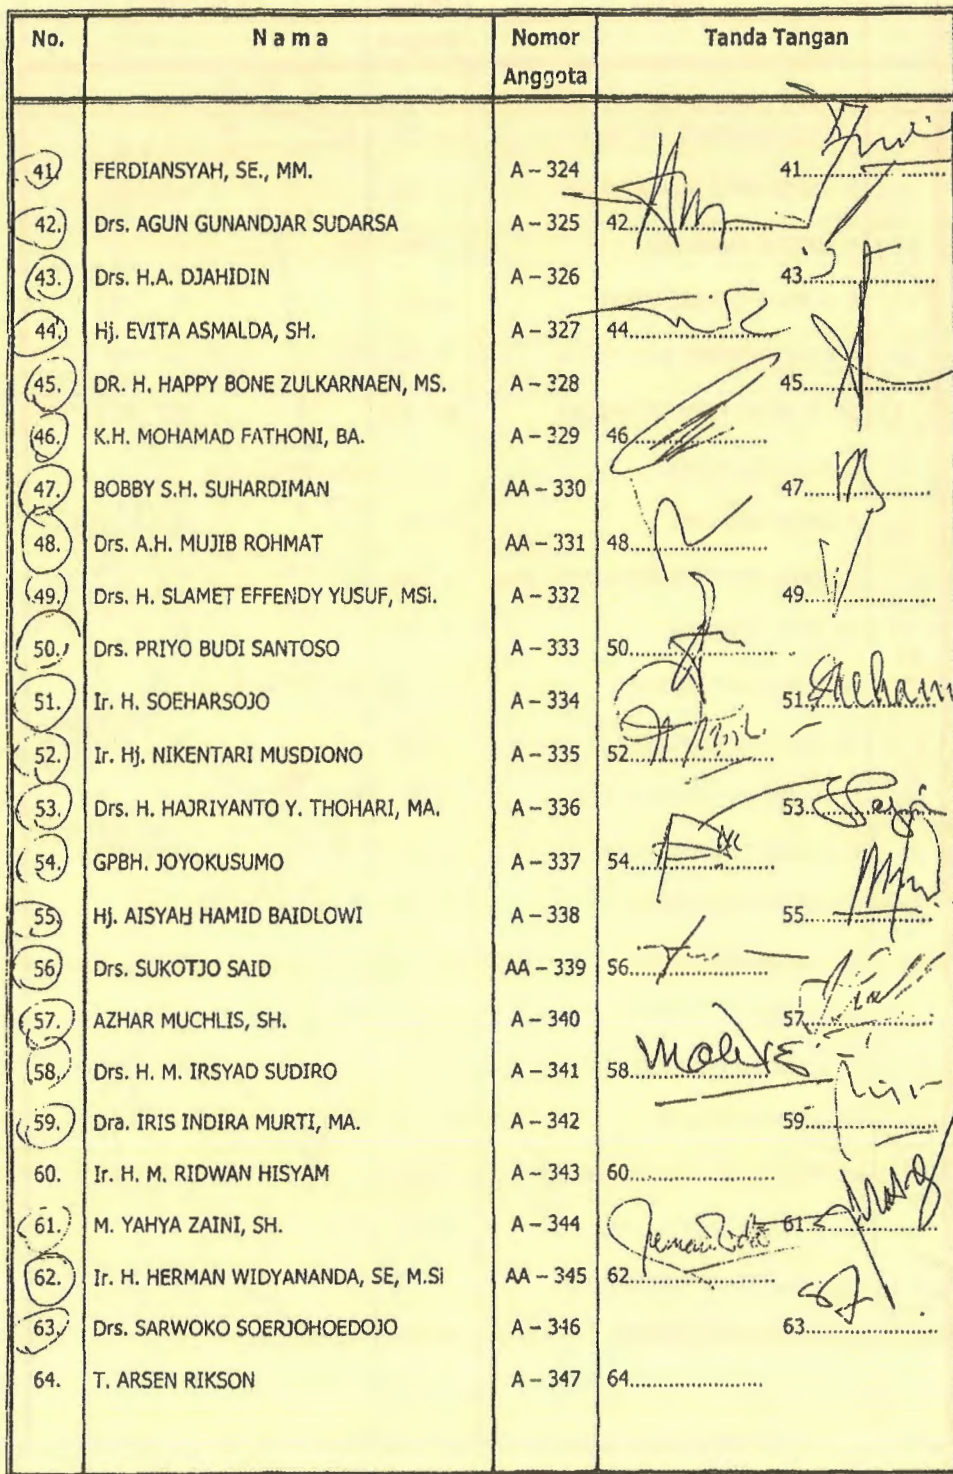 No. N a m a Nomor Anggota Tanda Tangan
41. FERDIANSYAH, SE., MM. A – 324 41
42. Drs. AGUN GUNANDJAR SUDARSA A – 325 42
43. Drs. H.A. DJAHIDIN A – 326 43
44. Hj. EVITA ASMALDA, SH. A – 327 44
45. DR. H. HAPPY BONE ZULKARNAEN, MS. A – 328 45
46. K.H. MOHAMAD FATHONI, BA. A – 329 46
47. BOBBY S.H. SUHARDIMAN AA – 330 47
48. Drs. A.H. MUJIB ROHMAT AA – 331 48
49. Drs. H. SLAMET EFFENDY YUSUF, MSi. A – 332 49
50. Drs. PRIYO BUDI SANTOSO A – 333 50
51. Ir. H. SOEHARSOJO A – 334 51
52. Ir. Hj. NIKENTARI MUSDIONO A – 335 52
53. Drs. H. HAJRIYANTO Y. THOHARI, MA. A – 336 53
54. GPBH. JOYOKUSUMO A – 337 54
55. Hj. AISYAH HAMID BAIDLOWI A – 338 55
56. Drs. SUKOTJO SAID AA – 339 56
57. AZHAR MUCHLIS, SH. A – 340 57
58. Drs. H. M. IRSYAD SUDIRO A – 341 58
59. Dra. IRIS INDIRA MURTI, MA. A – 342 59
60. Ir. H. M. RIDWAN HISYAM A – 343 60
61. M. YAHYA ZAINI, SH. A – 344 61
62. Ir. H. HERMAN WIDYANANDA, SE, M.Si AA – 345 62
63. Drs. SARWOKO SOERJOHOEDOJO A – 346 63
64. T. ARSEN RIKSON A – 347 64